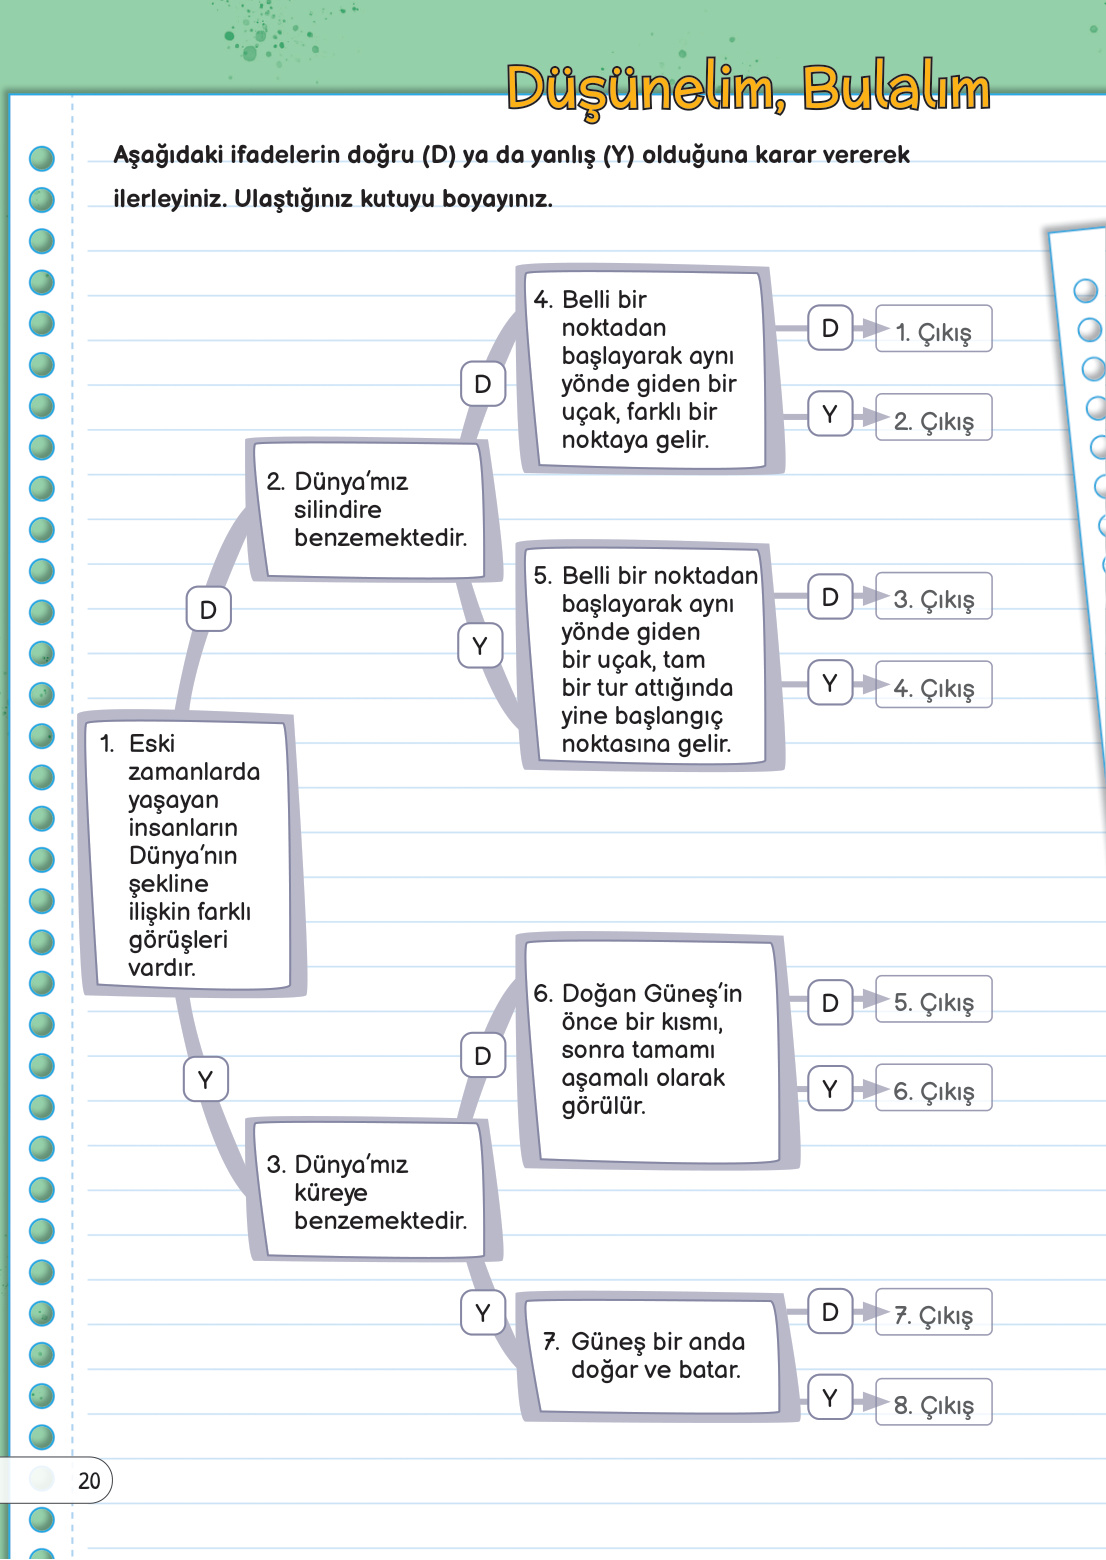 Düşünelim, Bulalım
Aşağıdaki ifadelerin doğru (D) ya da yanlış (Y) olduğuna karar vererek
ilerleyiniz. Ulaştığınız kutuyu boyayınız.
1. Eski
zamanlarda
yaşayan
insanların
Dünya'nın
şekline
ilişkin farklı
görüşleri
vardır.
D
Y
2. Dünya'mız
silindire
benzemektedir.
D
Y
3. Dünya'mız
küreye
benzemektedir.
D
Y
4. Belli bir
noktadan
başlayarak aynı
yönde giden bir
uçak, farklı bir
noktaya gelir.
D
1. Çıkış
Y
2. Çıkış
5. Belli bir noktadan
başlayarak aynı
yönde giden
bir uçak, tam
bir tur attığında
yine başlangıç
noktasına gelir.
D
3. Çıkış
Y
4. Çıkış
6. Doğan Güneş'in
önce bir kısmı,
sonra tamamı
aşamalı olarak
görülür.
D
5. Çıkış
Y
6. Çıkış
7. Güneş bir anda
doğar ve batar.
D
7. Çıkış
Y
8. Çıkış
20